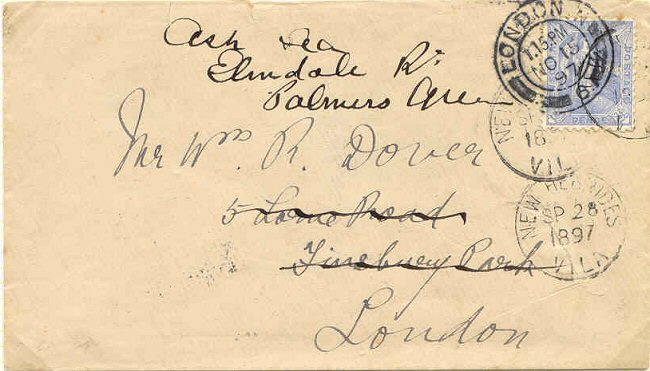 Ash Lea
Elmdale Rd
Palmers Green
Mr Wm R. Dover
5 Lorne Road
Finsbury Park
London
LONDON
1.15PM
NO 15
9
NEW
18
VIL
NEW HEBRIDES
SP 28
1897
VILA
PENCE